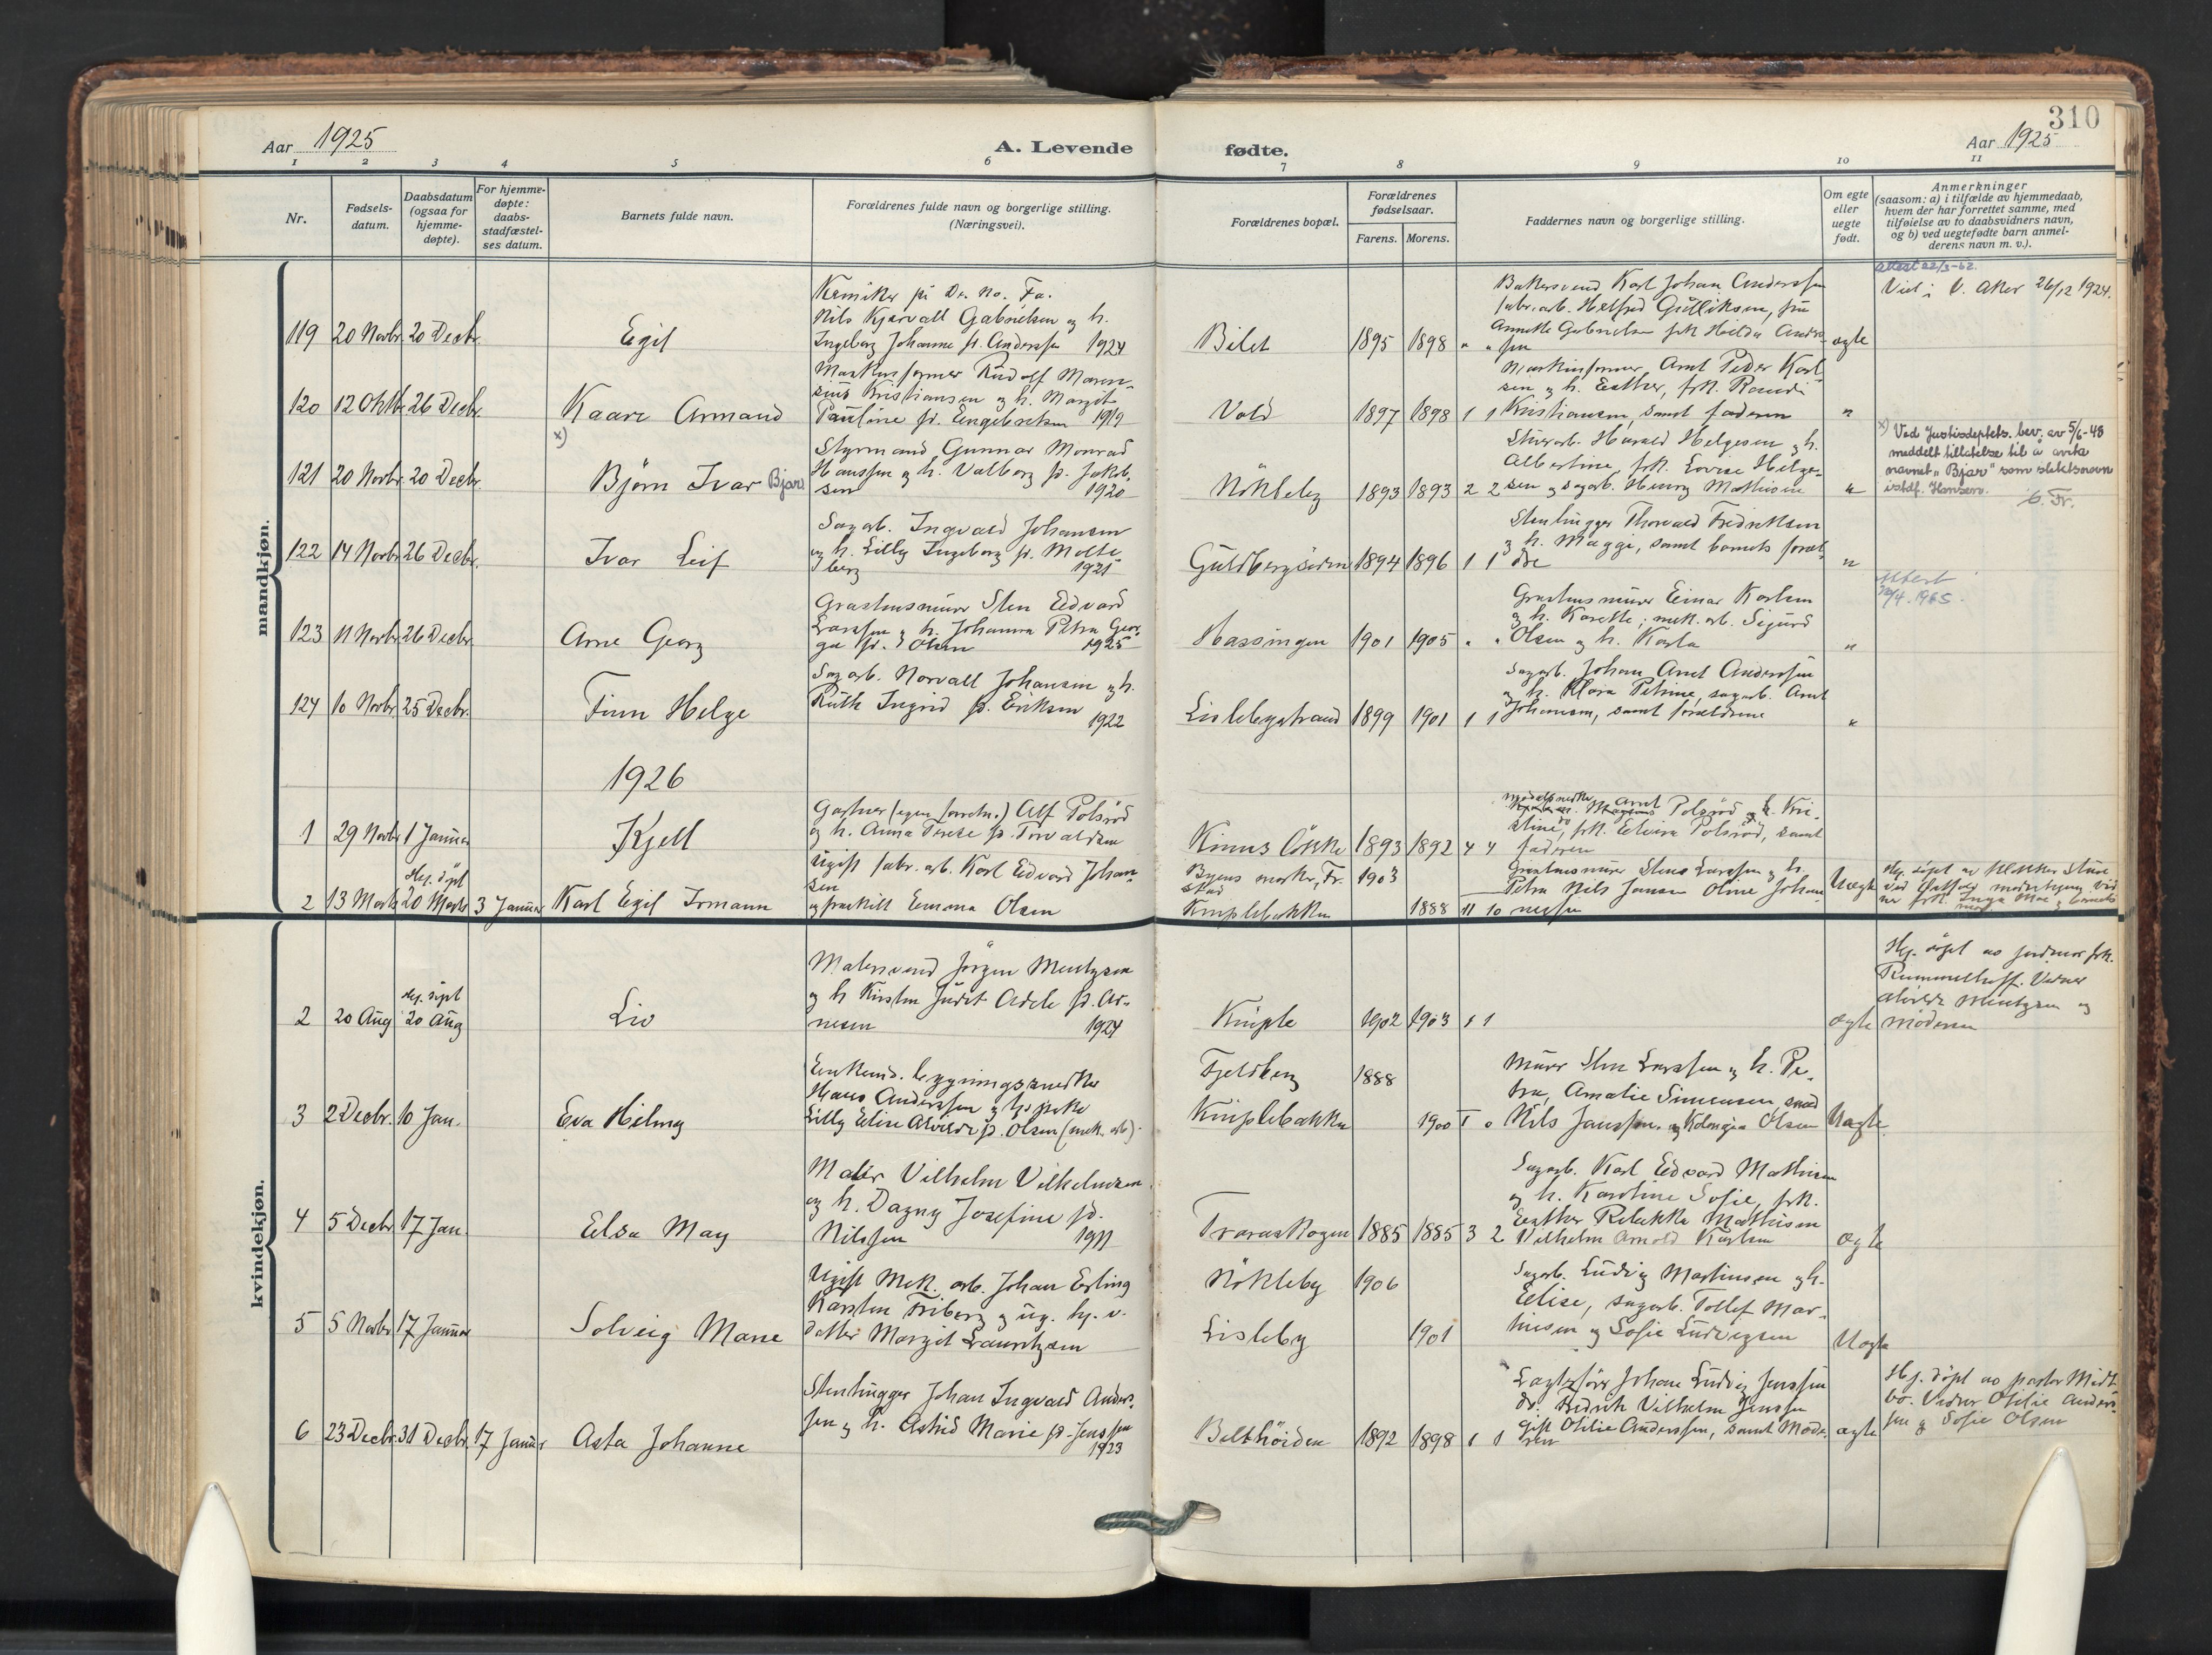 310
Aar 1925
A. Levende
fødte.
Aar 1925
1 2 3 4 5 6 7 8 9 10 11
Nr.
Fødsels-
datum.
Daabsdatum
(ogsaa for
hjemme-
døpte).
For hjemme-
døpte:
daabs-
stadfæstel-
ses datum.
Barnets fulde navn.
Forældrenes fulde navn og borgerlige stilling.
(Næringsvei).
Forældrenes bopæl.
Forældrenes
fødselsaar.
Farens. Morens.
Faddernes navn og borgerlige stilling.
Om egte
eller
uegte
født.
Anmerkninger
(saasom: a) i tilfælde av hjemmedaab,
hvem der har forrettet samme, med
tilføielse av to daabsvidners navn,
og b) ved uegtefødte barn anmel-
derens navn m. v.).
mandkjøn.
119 20 Novbr. 20 Decbr.
Egil
Kemiker på De. No. Fa.
Nils Kjærvall Gabrielsen og h.
Ingeborg Johanne f. Anderssen 1924
Bilet 1895 1898 " "
Bakersvend Karl Johan Anderssen
fabr. arb. Helfred Gulliksen, fru
Annette Gabrielsen frk Hilda Anders-
sen
ægte
Attest 22/3-62.
Viet i V. Aker 26/12 1924.
120 12 Oktb. 26 Decbr.
Kaare Armand
Maskinformer Rudolf Maren-
sius Kristiansen og h. Margit
Pauline f. Engebretsen 1919
Vold 1897 1898 1 1
Maskinformer Arnt Peder Karl-
sen og h. Esther, frk. Ragndi
Kristiansen, samt faderen
"
121 20 Novbr. 20 Decbr.
x)
Bjørn Ivar Bjar
Styrmand Gunnar Monrad
Hanssen og h. Valborg f. Jakob-
sen 1920
Nökleby 1893 1893 2 2
Stuerarb. Harald Helgesen og h.
Albertine, frk. Lovise Helge-
sen og sagarb. Henry Mathisen
"
x) Ved Justisdeptets. bev. av 5/6-48
meddelt tillatelse til å anta
navnet "Bjar" som slektsnavn
istdf. Hansen.
122 14 Novbr 26 Decbr.
Ivar Leif
Sagarb. Ingvald Johansen
og h. Lilly Ingeborg f. Molte-
berg 1921
Guldbergsiden 1894 1896 1 1
Stenhugger Thorvald Fredriksen
og h. Maggi, samt barnets foræl-
dre
"
123 11 Novbr 26 Decbr.
Arne Georg
Graastensmurer Sten Edvard
Larssen og h. Johanna Petra Geor-
ga f. Olsen 1925
Hassingen 1901 1905 " "
Graastensmurer Einar Karlsen
og h. Karette; mek. arb. Sigurd
Olsen og h. Karla
"
Attest
/4. 1965.
124 10 Novbr. 25 Decbr.
Finn Helge
Sagarb. Norvall Johansen og h.
Ruth Ingrid f. Eriksen 1922
Lislebystrand 1899 1901 1 1
Sagarb. Johan Arnt Anderssen
og h. Klara Petrine, sagarb. Arnt
Johansen, samt forældrene
"
1926
1 29 Novbr 1 Januar
Kjell
Gartner (egen forretn.) Alf Polsröd
og h. Anna Terese f. Torvaldsen
1893 1892 4 4
Arnt
Polsröd og h. Kri-
stine, frk. Elvira Polsröd, samt
faderen
2 13 Marts Hj. döpt 20 Marts 3 Januar
Karl Egil Irmann
Ugift fabr. arb. Karl Edvard Johan-
sen
og fraskilt Emma Olsen
Byens marker, Fr.
stad
Kniplebakken
1903 1888 11 10
Graastensmurer Stens Larssen og h.
Petra Nils Jansen Oline Johan-
nessen
Uægte
kvindekjøn.
2 20 Aug Hj. döpt 20 Aug
Liv
Malersvend Jørgen Mentzsen
og h Kirsten Judit Adele f. Ar-
nesen 1924
Kniple 1902 1903 1 1
ægte
Hj. döpt av jordmor frk.
Rummelhoff. Vidner
Alvilde Mentzsen og
moderen
3 2 Decbr. 10 Jan.
Eva Helmy
Enkemd. bygningssnedker
Hans Anderssen og
Lilly Elise Alvilde f. Olsen (mek. arb)
Fjeldberg 1888
Kniplebakken 1900
Murer Sten Larssen og h. Pe-
tra, Amalie Simensen
Nils Janssen. og Kolongia Olsen
Uægte
4 5 Decbr 17 Jan.
Elsa May
Maler Vilhelm Vilhelmsen
og h. Dagny Josefine f.
Nilssen 1911
Traraskogen 1885 1885 3 2
Sagarb. Karl Edvard Mathisen
og h. Karoline Sofie, frk.
Esther Rebekka Mathisen
Vilhelm Arnold Karlsen
ægte
5 5 Novbr 17 Januar
Solveig Marie
Ugift Mek. arb. Johan Erling
Karsten Friberg og ug. hj. v.
datter Margit Lauritzsen
Nökleby 1906
Lisleby 1901
Sagarb. Ludvig Martinsen og h.
Elise, sagarb. Tollef Mar-
tinsen og Sofie Ludvigsen
Uægte
6 23 Decbr. 31 Decbr. 17 Januar
Asta Johanne
Stenhugger Johan Ingvald Anders-
sen og h. Astrid Marie f. Jenssen
1923
Belthöiden 1892 1898 1 1
Johan Ludvig Jenssen
do. Fredrik Vilhelm Jenssen
Gift Otilie Anderssen, samt Mode-
ren
ægte
Hj. döpt av pastor Midt-
bö. Vidner Otilie Anders-
sen og Sofie Olsen